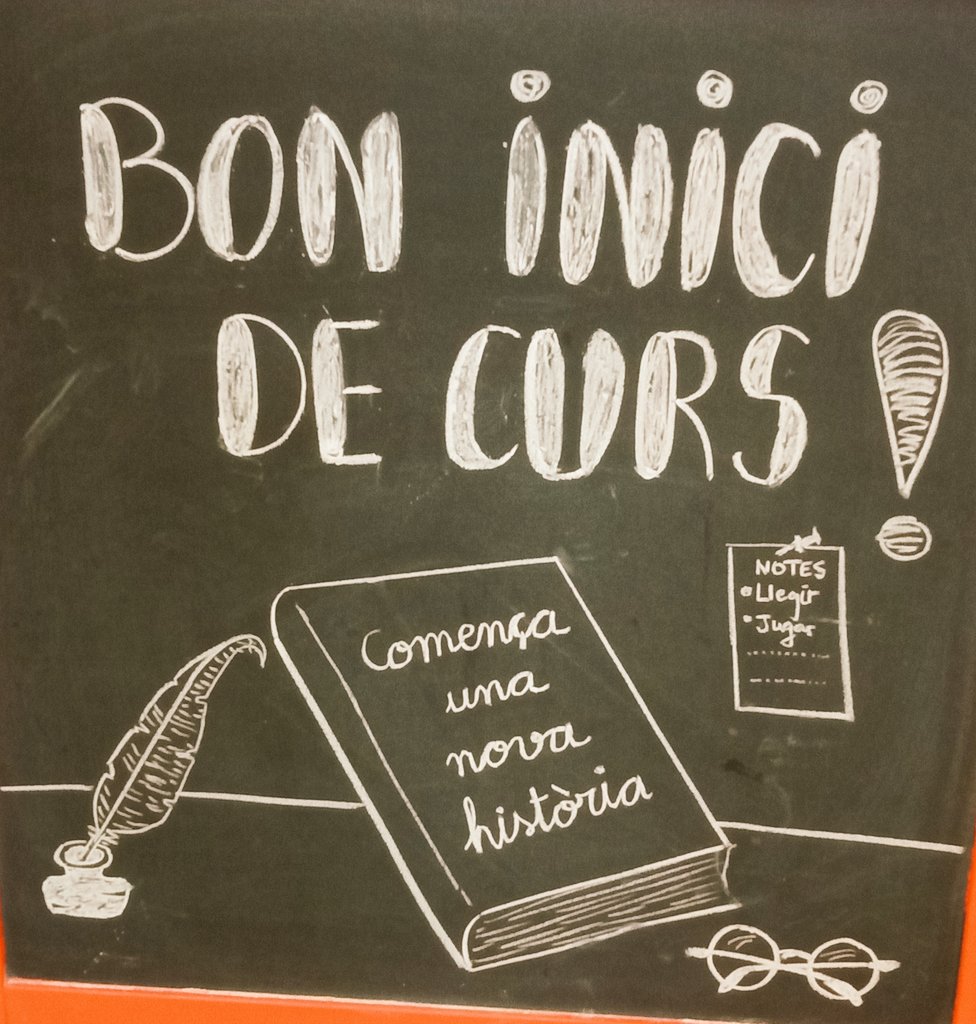 BON iNiCi
DE CURS!
Comença
una
nova
història
NOTES
• Llegir
• Jugar